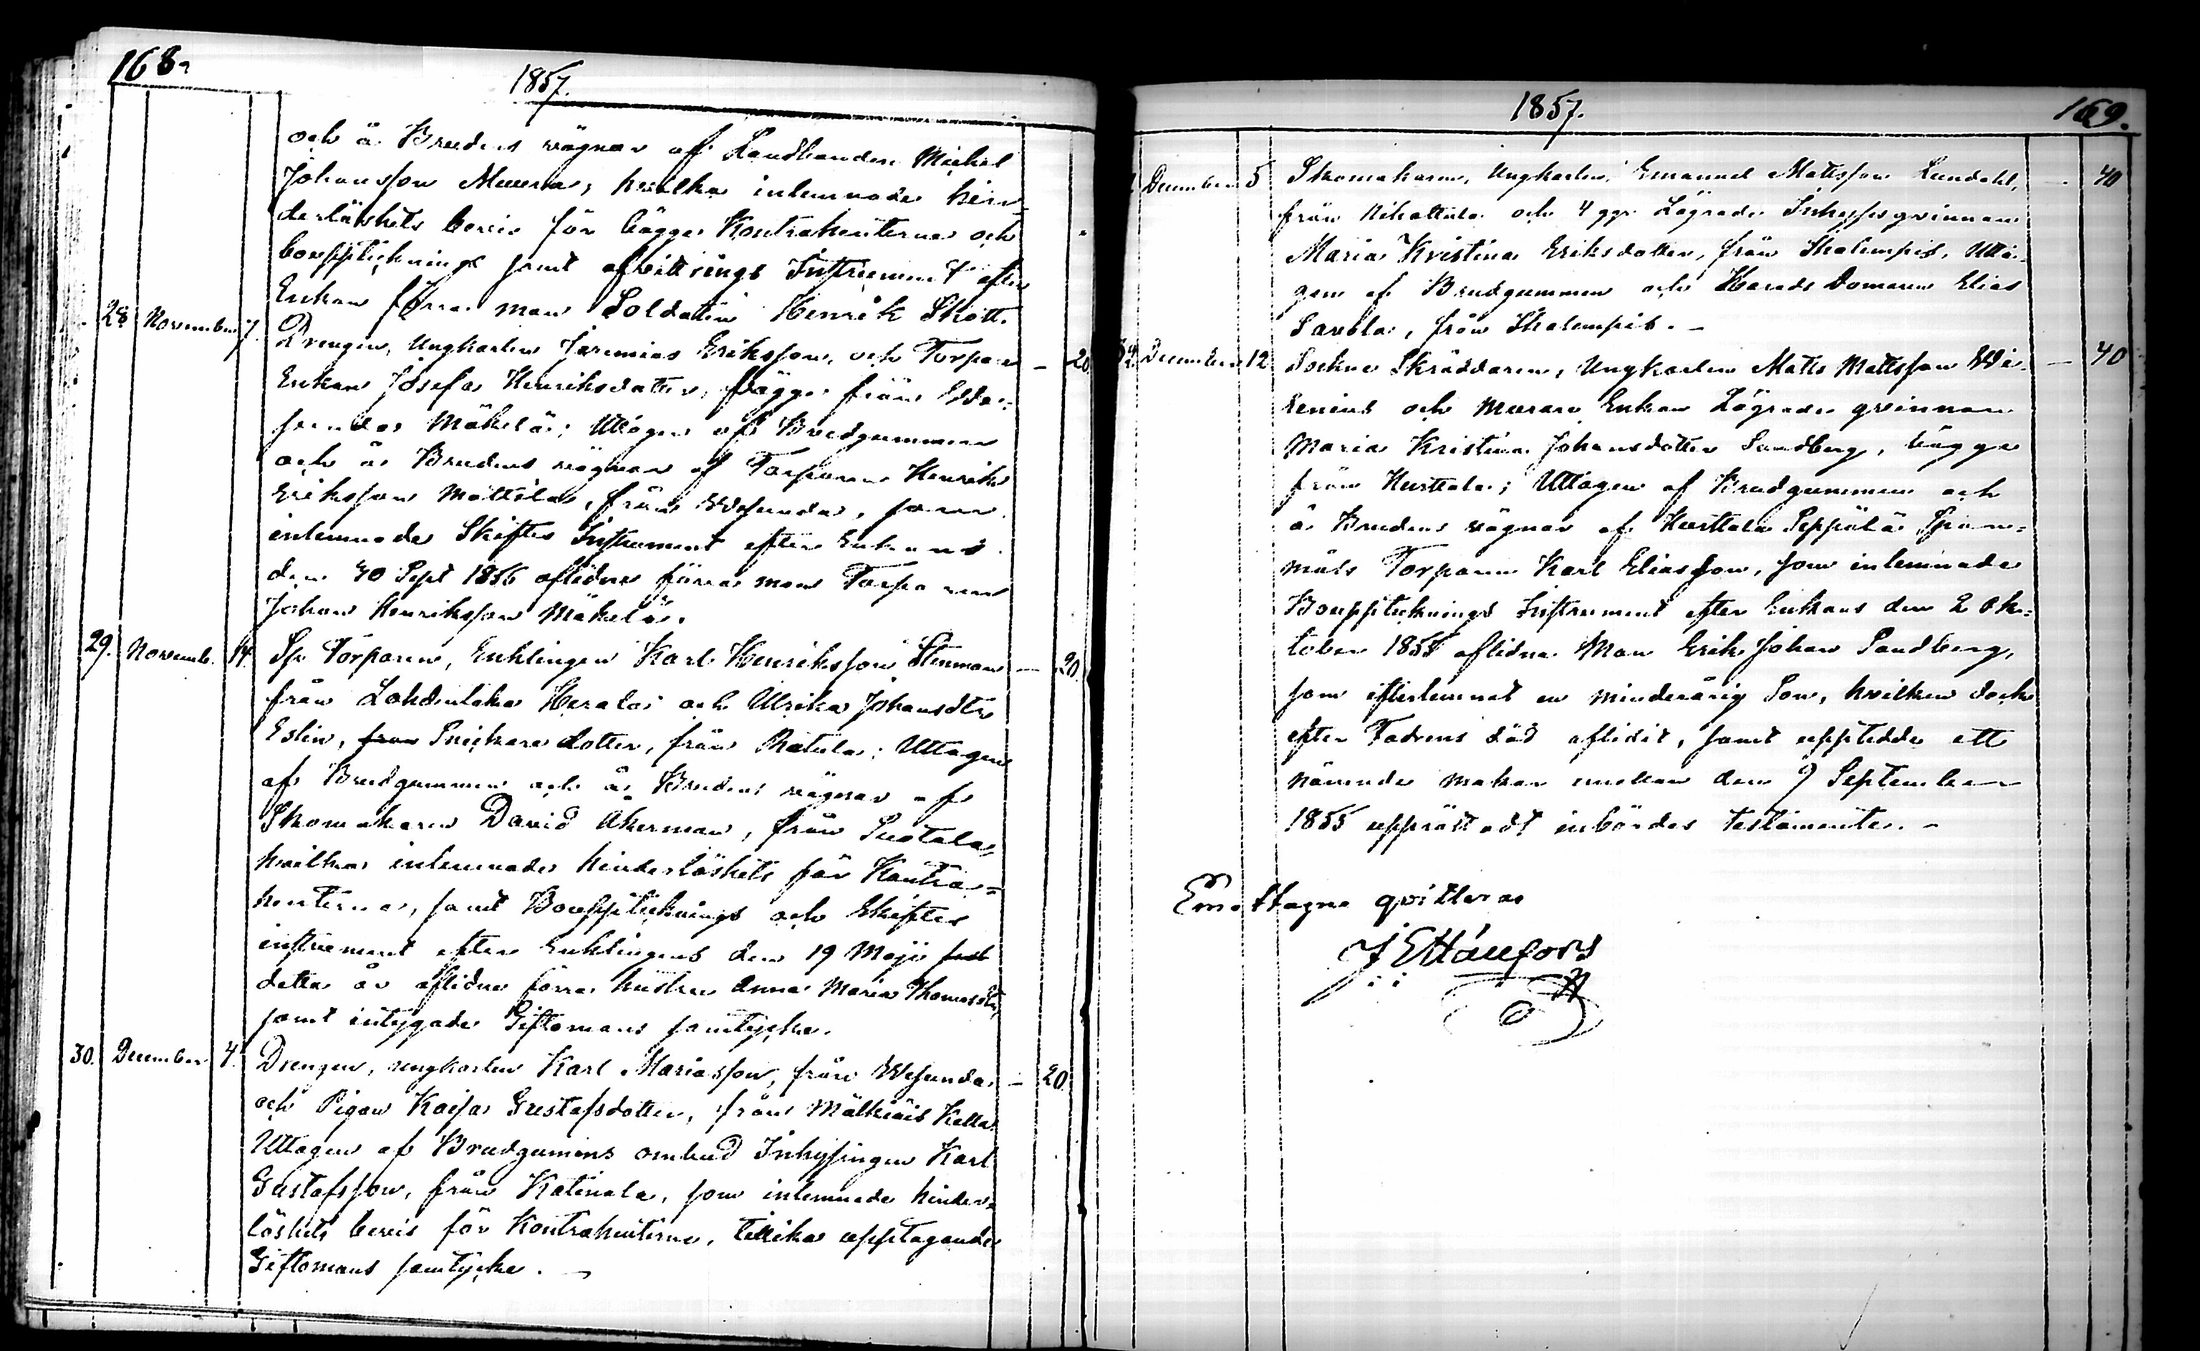 168.
1857.
och å Brudens vägnar af Landbonden Michel
Johansson Muurra, hvilka inlemnade hin-
derlöshets bevis för bägge Kontrahenterna och
bouppteknings samt afvittrings Instrument efter
Enkans förra man Soldaten Henrik Skott.
28 November 7. Drengen, Ungkarlen Jeremias Eriksson, och Torpare — 20
Enkan Josefa Henriksdotter, bägge från
Mäkelä; Uttagen af Brudgummen
och å Brudens vägnar af Torparen Henrik
Eriksson Mattila, från Wesunda, som
inlemnade Skiftes Instrument efter Enkans
den 30 Sept 1856 aflidne förra man Torparen
Johan Henriksson Mäkelä.
29. Novemb. 14. Sp. Torparen, Enklingen Karl Henriksson Stenman — 20.
från Lohdentaka Herala och Ulrika Johansdtr
Eslin, från Snickare dotter, från Ratula; Uttagen
af Brudgummen och å Brudens vägnar af
Skomakaren David Åkerman, från Suotala,
hvilka inlemnade hinderlöshets för Kontra=
henterna, samt Bouppteknings och Skiftes
instrument efter Enklingens den 19 Maji
detta år aflidne förra hustru Anna Maria Thomasdtr,
samt intygade Giftomans samtycke.
30. December 4. Drengen, ungkarlen Karl Mariasson, från Wesunda — 20.
och Pigan Kaisa Gustafsdotter, från Mälkiäis Kella
Uttagen af Brudgummens ombud Inhysingen Karl
Gustafsson, från Katinala, som inlemnade hinder=
löshets bevis för Kontrahenterne, tillika upptagande
Giftomans samtycke. —
1857.
169.
December 5 Skomakaren, Ungkarlen Emanuel Mattsson Lundahl, — 40
från Nihattula och 4 ggr Lägrade Inhyses qvinnan
Maria Kristina Eriksdotter, från Skalempis, Utta-
gen af Brudgummen och Härads Domaren Elias
Savola, från Skalempis. —
December 12 Sockne Skräddaren, Ungkarlen Matts Mattsson We- — 40
lenius och Murare Enkan Lägrade qvinnan
Maria Kristina Johansdotter Sandberg, bägge
från Hurttala; Uttagen af Brudgummen och
å Brudens vägnar af Hurttala Seppälä Span=
måls Torparen Karl Eliasson, som inlemnade
Bouppteknings Instrument efter Enkans den 2 Ok=
tober 1855 aflidne Man Erik Johan Sandberg,
som efterlemnat en minderårig Son, hvilken dock
efter Fadrens död aflidit, samt uppteedde ett
nämnde makar emellan den 9 September
1855 upprättadt inbördes testamente. —
Emottagne qvitteras